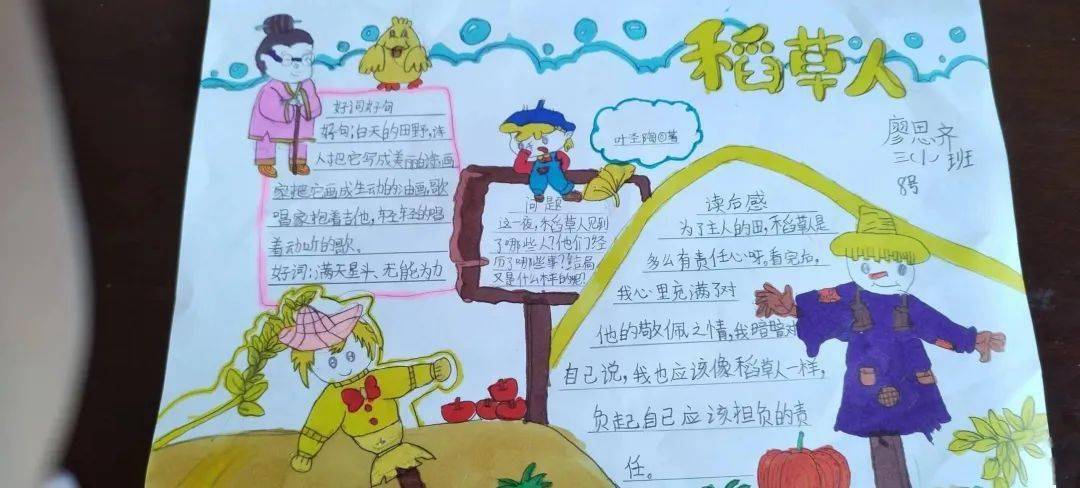 稻草人
叶圣陶◎著
廖思齐
三（1）班
8号
好词好句
好句：白天的田野，诗
人把它写成美丽的诗，画
家把它画成生动的油画，歌
唱家抱着吉他，轻轻的唱
着动听的歌。
好词：满天星斗、无能为力
问题
这一夜，稻草人见到
了哪些人？他们经
历了哪些事？结局
又是什么样的呢？
读后感
为了主人的田，稻草人是
多么有责任心呀。看完后，
我心里充满了对
他的敬佩之情，我暗暗对
自己说，我也应该像稻草人一样，
负起自己应该担负的责
任。